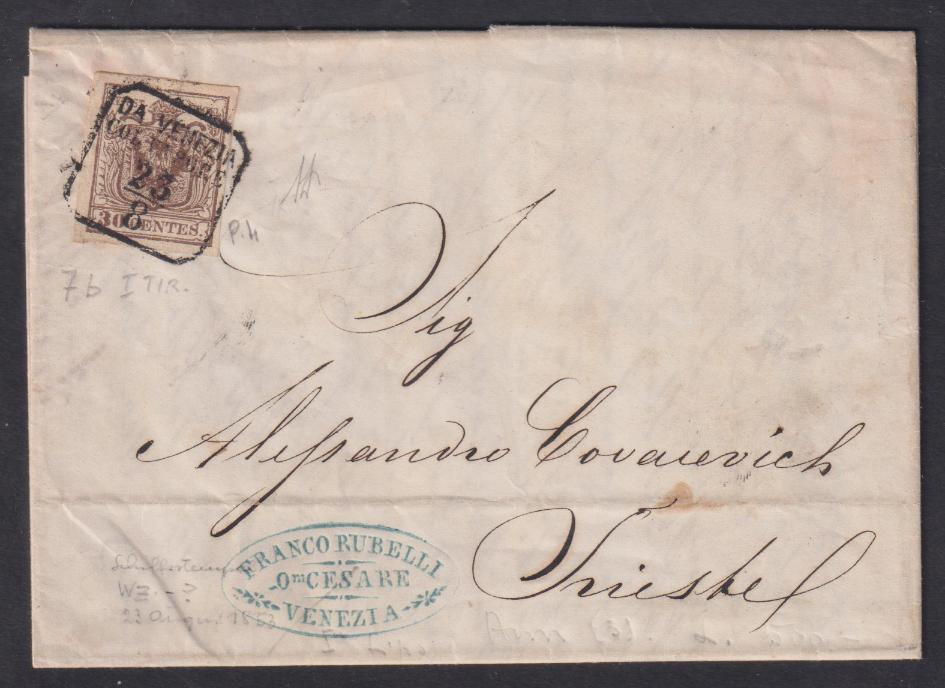 DA VENEZIA
COL VAPORE
23
8
30 CENTES.
P.H
7b I TIR.
Sig
Alessandro Covacevich
Trieste
FRANCO RUBELLI
Qm CESARE
VENEZIA
23 August 1853